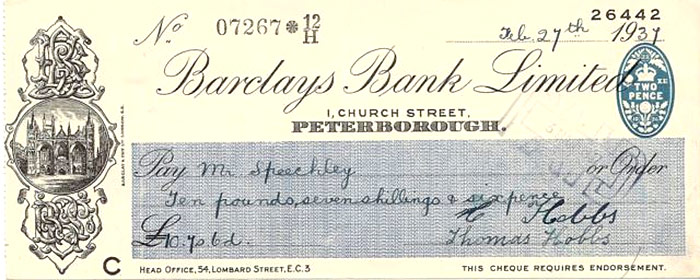 26442
No 07267*12/H Feb. 27th 1937
Barclays Bank Limited
TWO PENCE
1, CHURCH STREET,
PETERBOROUGH.
Pay Mr Speechley or Order
Ten pounds, seven shillings & sixpence
H Hobbs
£10.7s 6d. Thomas Hobbs
C
HEAD OFFICE, 54, LOMBARD STREET, E.C.3 THIS CHEQUE REQUIRES ENDORSEMENT.